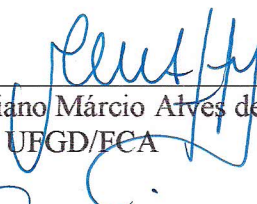 iano Márcio Alves de
UFGD/FCA